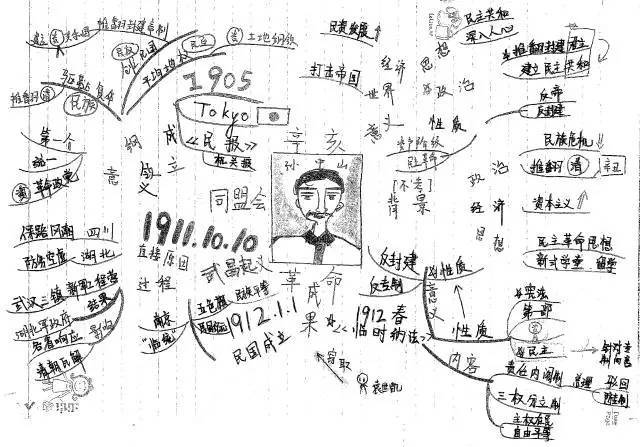 推翻封建帝制
民权
创立民国
平均地权
民生
土地纲领
推翻清
驱除鞑虏
民族
1905
Tokyo
《民报》
机关报
成立
纲领
意义
第一个
统一
革命政党
同盟会
保路风潮 四川
防务空虚 湖北
1911.10.10
直接原因
武昌起义
过程
武汉三镇 新军工程营
结果
湖北军政府
各省响应
影响
清朝瓦解
南京
"临统"
五色旗
民族平等
1912.1.1
民国成立
辛亥
孙中山
革命
成果
窃取
袁世凯
民资发展
打击帝国
经济
世界
意义
思想
政治
性质
民主共和
深入人心
推翻封建君主
建立民主共和
反帝
反封建
资产阶级
民主革命
[不考]
背景
政治
经济
思想
民族危机
推翻清
辛丑
资本主义
民主革命思想
新式学堂 留学
反封建
反专制
性质
意义
1912春
《临时约法》
性质
内容
宪法
第一部
民主
责任内阁制
总理
驳回
三权分立制
主权在民
自由平等